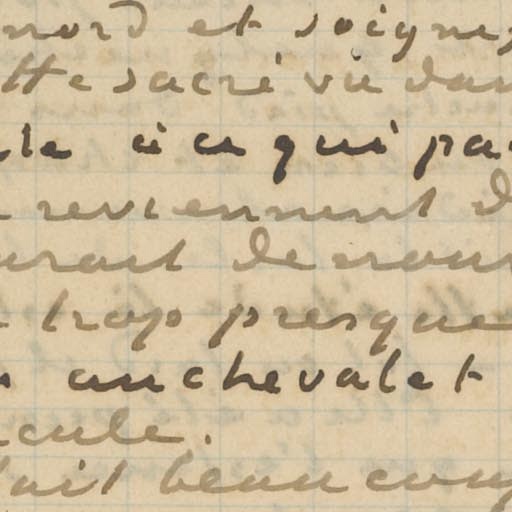 nord et soigne
tte sacré vie dan
le à ce qui pa
reviennent d
urait de nou
trop presque
un chevalet
cule.
fait beaucoup